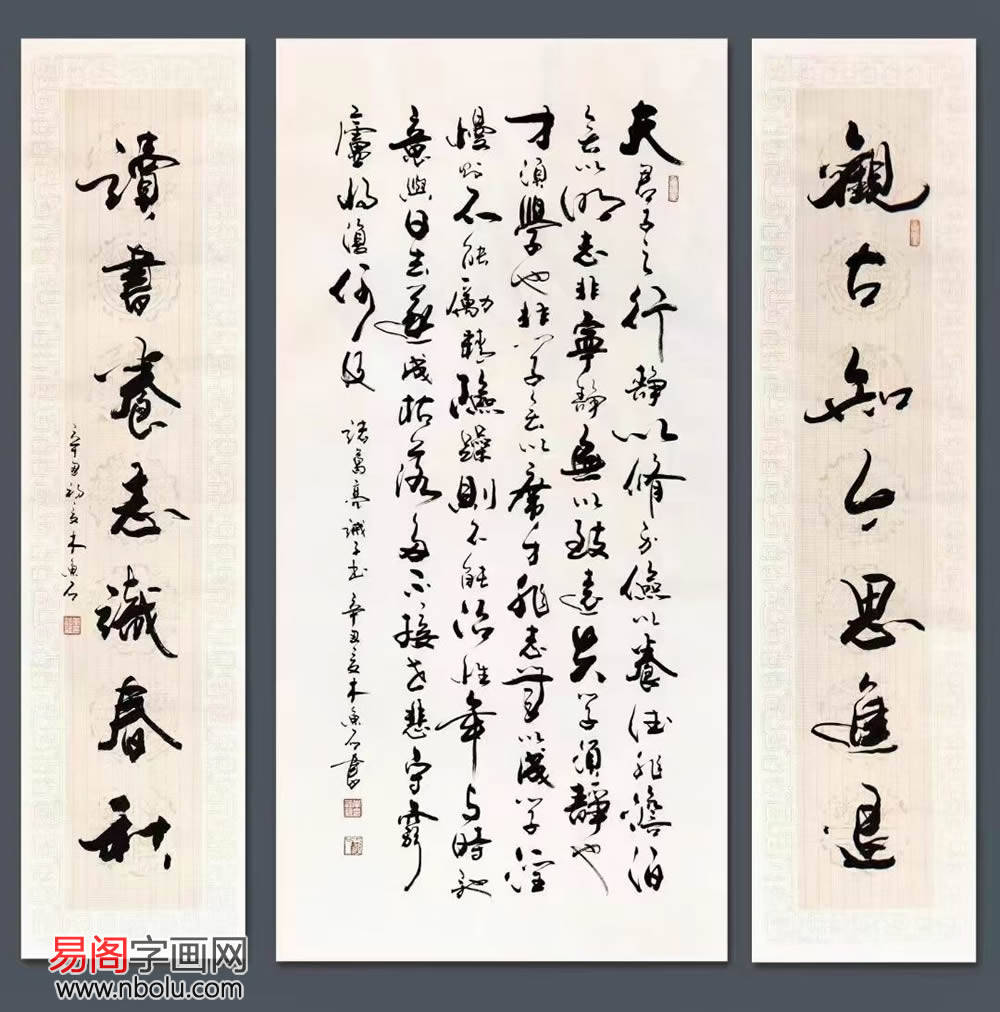 觀古知今思進退
夫君子之行靜以脩身儉以養德非澹泊
無以明志非寧靜無以致遠夫學須靜也
才須學也非學無以廣才非志無以成學淫
慢則不能勵精險躁則不能治性年與時馳
意與日去遂成枯落多不接世悲守窮
廬將復何及 諸葛亮誡子書 辛丑夏木魚石書
讀書養志識春秋
辛丑初夏木魚石
易阁字画网
www.nbolu.com